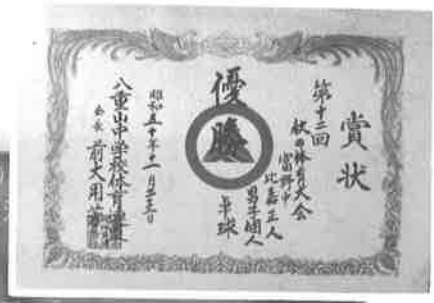 賞状
第十二回
秋の体育大会
富野中
比嘉正人
男子個人
卓球
優勝
昭和五十年十一月二三日
八重山中学校体育連盟
会長 前大用